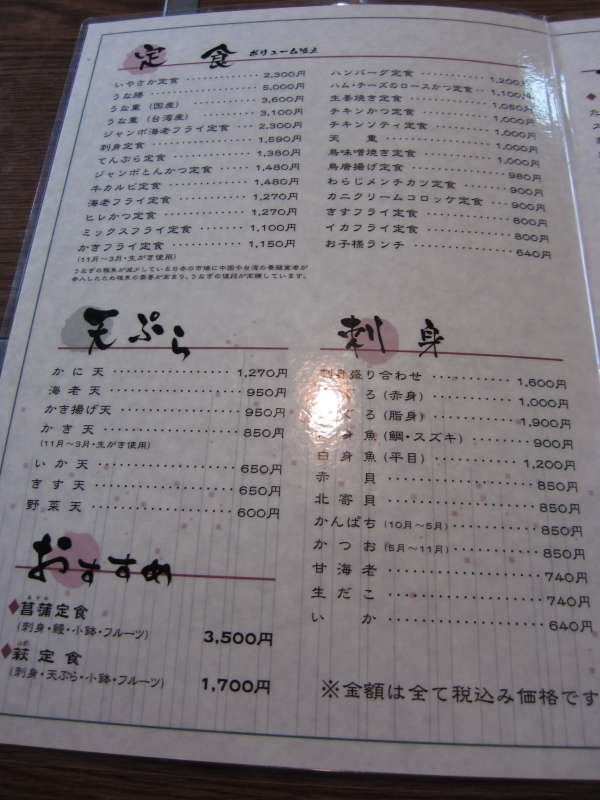 定食 ボリューム満点
いやさか定食 2,300円
うな勝 5,000円
うな重(国産) 3,600円
うな重(台湾産) 3,100円
ジャンボ海老フライ定食 2,300円
刺身定食 1,590円
てんぷら定食 1,380円
ジャンボとんかつ定食 1,480円
牛カルビ定食 1,480円
海老フライ定食 1,270円
ヒレかつ定食 1,270円
ミックスフライ定食 1,100円
かきフライ定食 1,150円
(11月〜3月・生がき使用)
ハンバーグ定食 1,200円
ハム・チーズのロースかつ定食 1,100円
生姜焼き定食 1,050円
チキンかつ定食 1,000円
チキンソティ定食 1,000円
天重 1,000円
鳥味噌焼き定食 1,000円
鳥唐揚げ定食 980円
わらじメンチカツ定食 900円
カニクリームコロッケ定食 900円
きすフライ定食 800円
イカフライ定食 800円
お子様ランチ 640円
天ぷら
かに天 1,270円
海老天 950円
かき揚げ天 950円
かき天 850円
(11月〜3月・生がき使用)
いか天 650円
きす天 650円
野菜天 600円
おすすめ
◆菖蒲定食
(刺身・鰻・小鉢・フルーツ) 3,500円
◆萩定食
(刺身・天ぷら・小鉢・フルーツ) 1,700円
刺身
刺身盛り合わせ 1,600円
ぐろ(赤身) 1,000円
ぐろ(脂身) 1,900円
身魚(鯛・スズキ) 900円
白身魚(平目) 1,200円
赤貝 850円
北寄貝 850円
かんぱち(10月〜5月) 850円
かつお(5月〜11月) 850円
甘海老 740円
生だこ 740円
いか 640円
※金額は全て税込み価格です